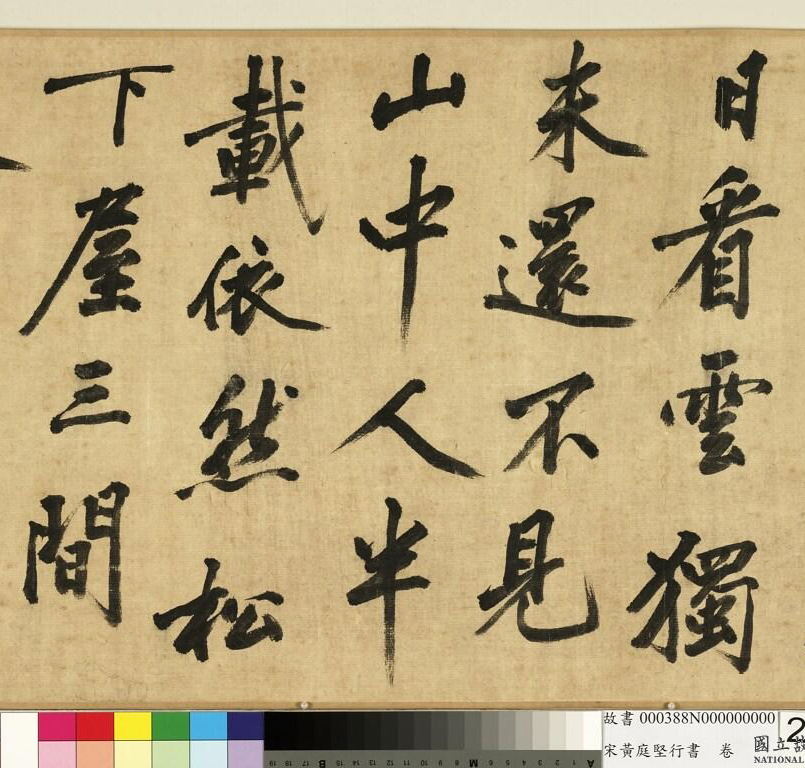 日看雲獨
来還不見
山中人半
載依然松
下屋三間
故書 000388N000000000
宋黃庭堅行書 卷
2
國立故
NATIONAL